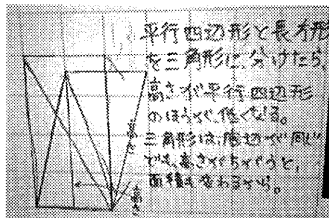 平行四辺形と長方形
を三角形に、分けたら、
高さが平行四辺形
のほうが、低くなる。
三角形は、底辺が同じ
でも、高さがちがうと、
面積も変わるから。
高さ
高さ